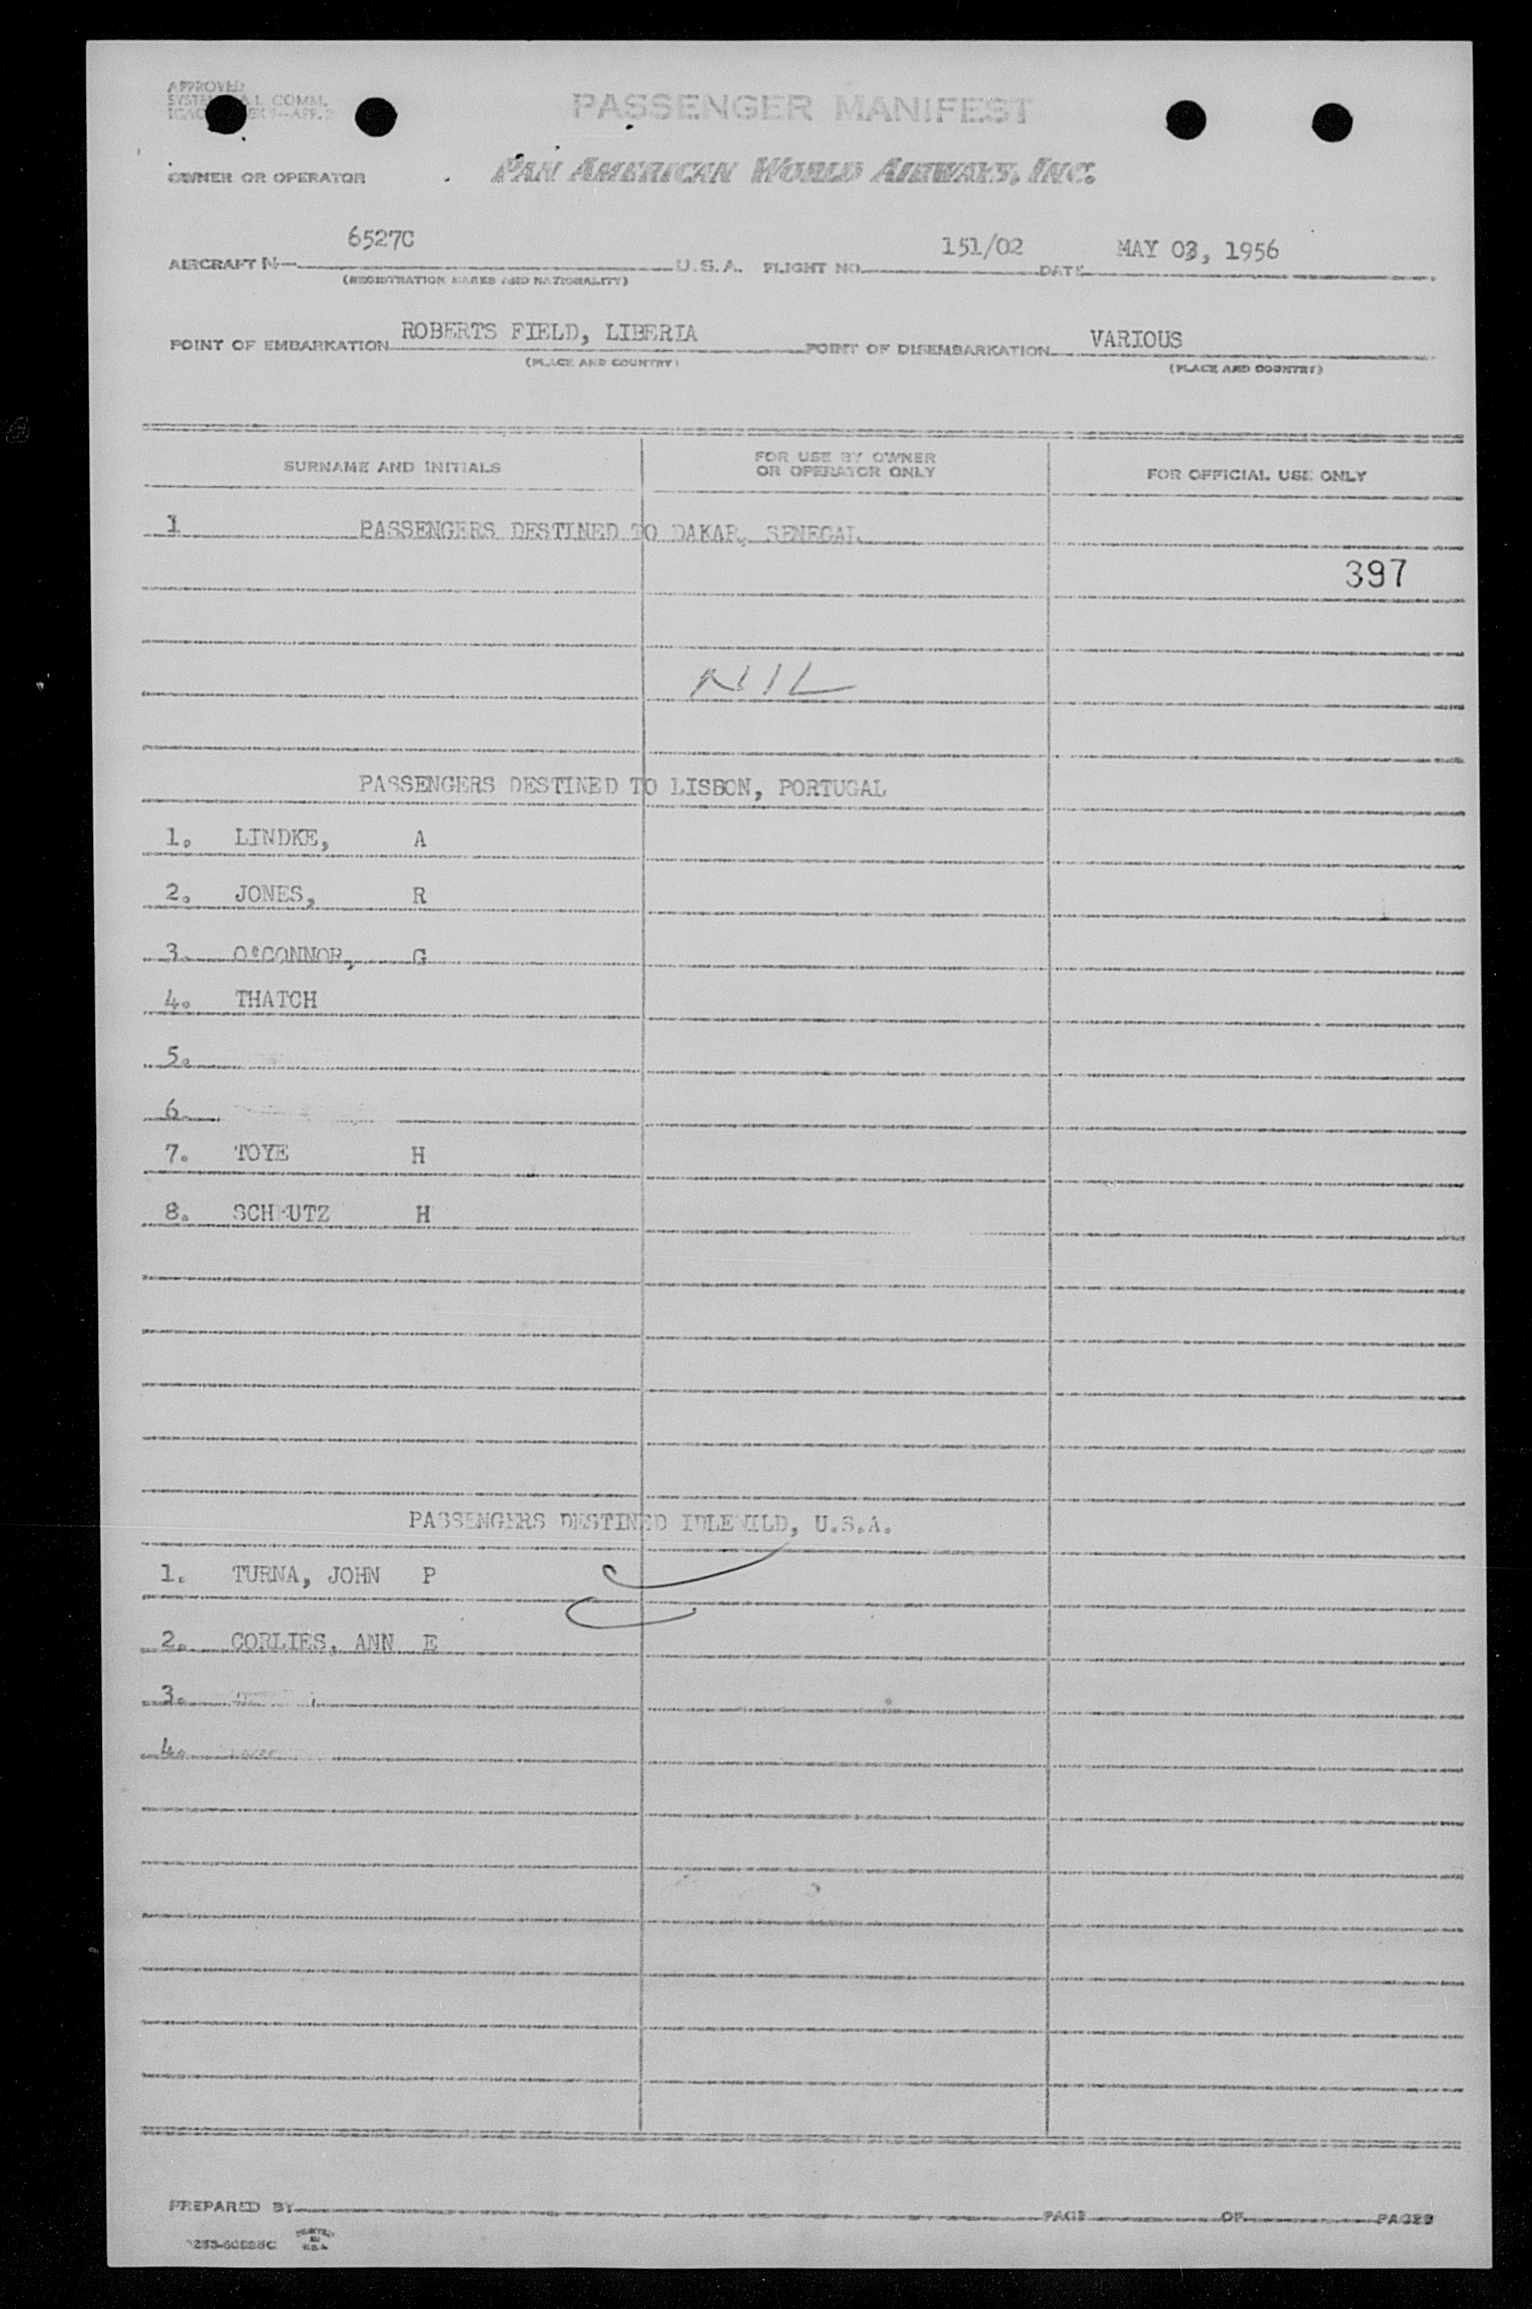 APPROVED
COMM.
PASSENGER MANIFEST
OWNER OR OPERATOR PAN AMERICAN WORLD AIRWAYS, INC.
AIRCRAFT N— 6527C U.S.A. FLIGHT NO. 151/02 DATE MAY 03, 1956
(REGISTRATION MARKS AND NATIONALITY)
POINT OF EMBARKATION ROBERTS FIELD, LIBERIA POINT OF DISEMBARKATION VARIOUS
(PLACE AND COUNTRY) (PLACE AND COUNTRY)
SURNAME AND INITIALS FOR USE BY OWNER OR OPERATOR ONLY FOR OFFICIAL USE ONLY
1 PASSENGERS DESTINED TO DAKAR, SENEGAL
397
NIL
PASSENGERS DESTINED TO LISBON, PORTUGAL
1. LINDKE, A
2. JONES, R
3. O'CONNOR, G
4. THATCH
5.
6.
7. TOYE H
8. H
PASSENGERS DESTINED IDLEWILD, U.S.A.
1. TURNA, JOHN P
2. CORLIES, ANN E
3.
4.
PREPARED BY PAGE OF PAGES
PRINTED IN U.S.A.